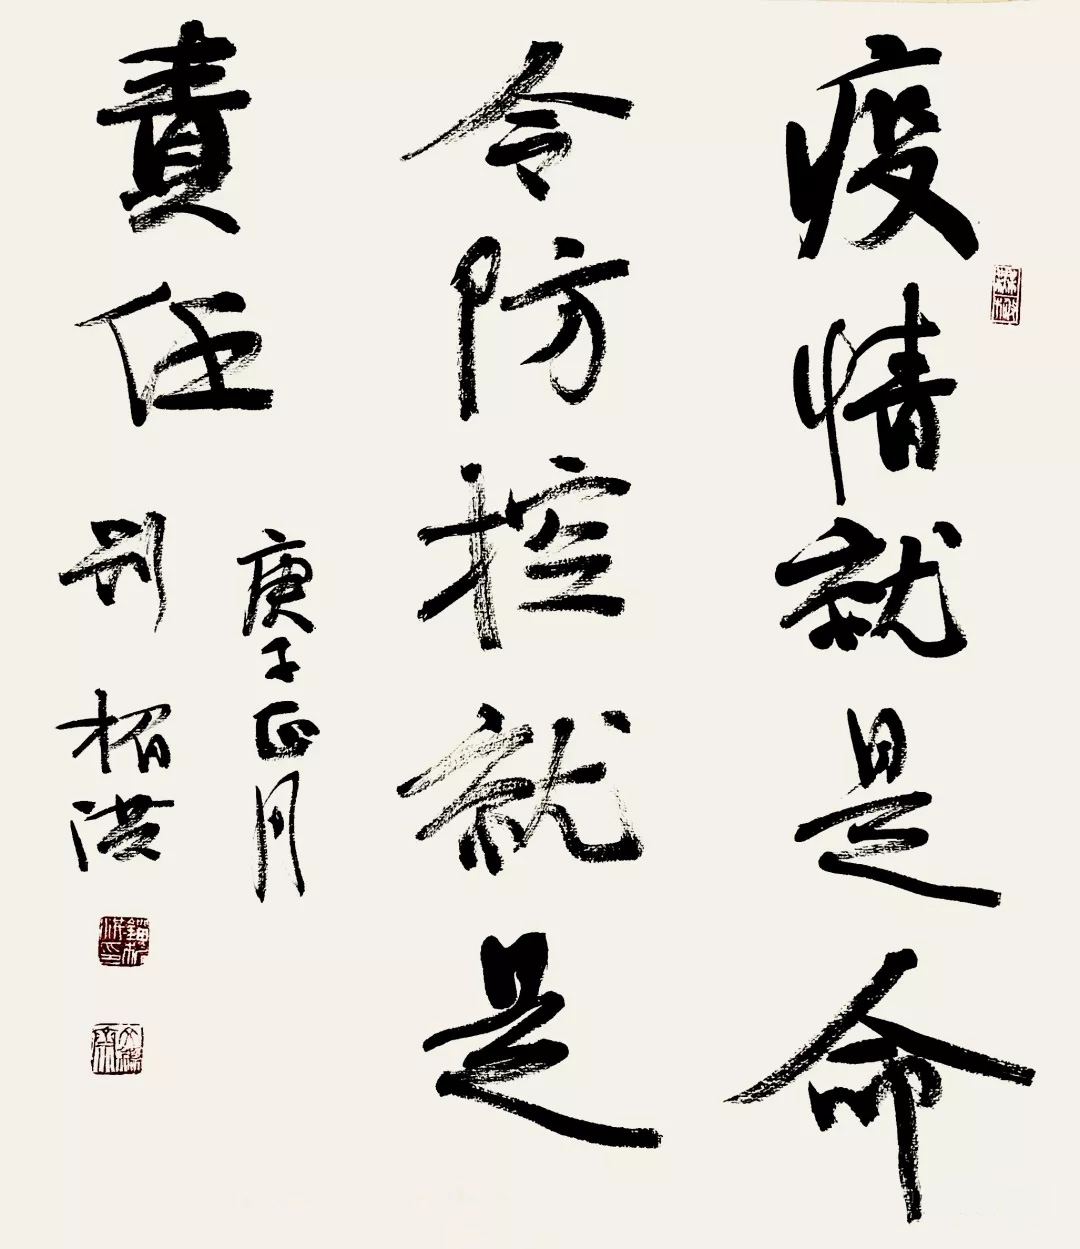 疫情就是命
令防控就是
責任
庚子正月
刘柏洪